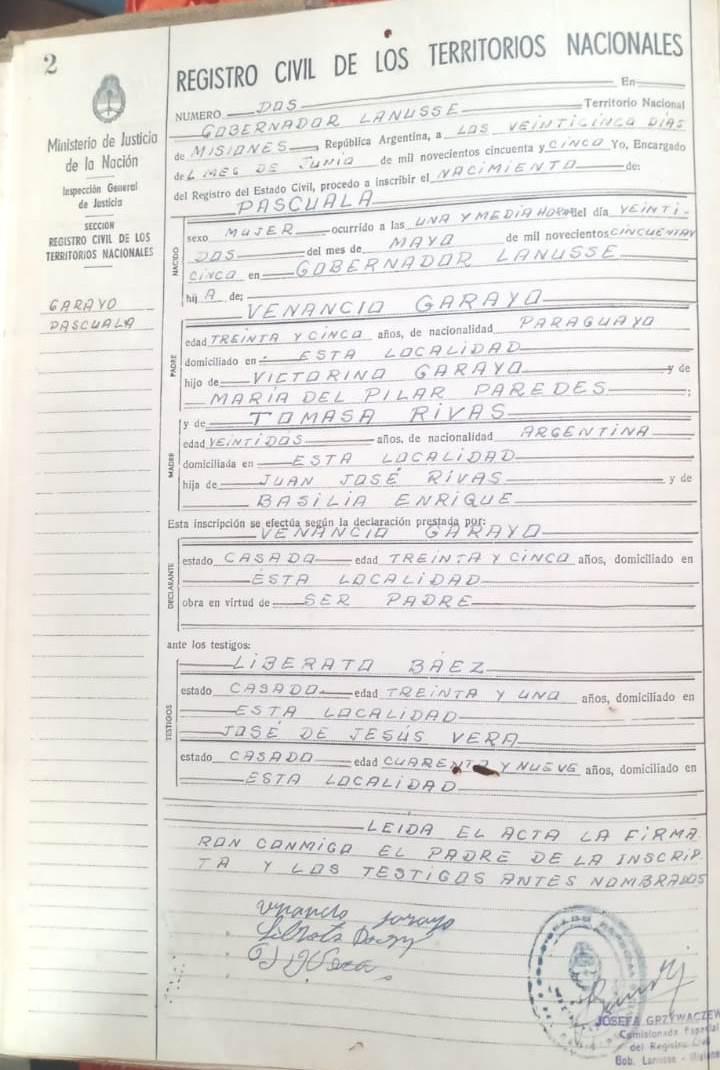 2
Ministerio de Justicia
de la Nación
Inspección General
de Justicia
SECCION
REGISTRO CIVIL DE LOS
TERRITORIOS NACIONALES
GARAYO
PASCUALA
REGISTRO CIVIL DE LOS TERRITORIOS NACIONALES
NUMERO DOS En
GOBERNADOR LANUSSE Territorio Nacional
de MISIONES, República Argentina, a LOS VEINTICINCO DÍAS
del MES DE JUNIO de mil novecientos cincuenta y CINCO Yo, Encargado
del Registro del Estado Civil, procedo a inscribir el NACIMIENTO de:
PASCUALA
NACIDO
sexo MUJER ocurrido a las UNA Y MEDIA HORA del día VEINTI-
DOS del mes de MAYO de mil novecientos CINCUENTAY
CINCO en GOBERNADOR LANUSSE
hijA de;
VENANCIO GARAYO
PADRE
edad TREINTA Y CINCO años, de nacionalidad PARAGUAYO
domiciliado en ESTA LOCALIDAD
hijo de VICTORINO GARAYO y de
MARÍA DEL PILAR PAREDES ;
y de TOMASA RIVAS
MADRE
edad VEINTIDOS años, de nacionalidad ARGENTINA
domiciliada en ESTA LOCALIDAD
hija de JUAN JOSÉ RIVAS y de
BASILIA ENRIQUE
Esta inscripción se efectúa según la declaración prestada por:
VENANCIO GARAYO
DECLARANTE
estado CASADO edad TREINTA Y CINCO años, domiciliado en
ESTA LOCALIDAD
obra en virtud de SER PADRE
ante los testigos:
LIBERATO BÁEZ
TESTIGOS
estado CASADO edad TREINTA Y UNO años, domiciliado en
ESTA LOCALIDAD
JOSÉ DE JESÚS VERA
estado CASADO edad CUARENTA Y NUEVE años, domiciliado en
ESTA LOCALIDAD
LEIDA EL ACTA LA FIRMA
RON CONMIGO EL PADRE DE LA INSCRIP
TA Y LOS TESTIGOS ANTES NOMBRADOS
JOSEFA GRZYWACZEW
Comisionada Especial
del Registro Civil
Gob. Lanusse - Misiones